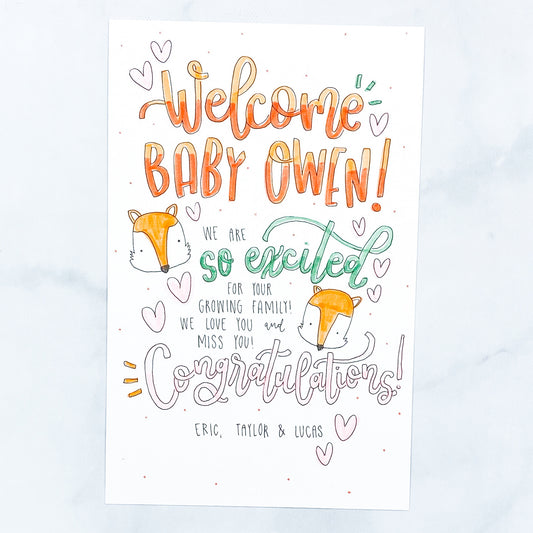 Welcome
BABY OWEN!
WE ARE
so excited
FOR YOUR
GROWING FAMILY!
WE LOVE YOU and
MISS YOU!
Congratulations!
ERIC, TAYLOR & LUCAS